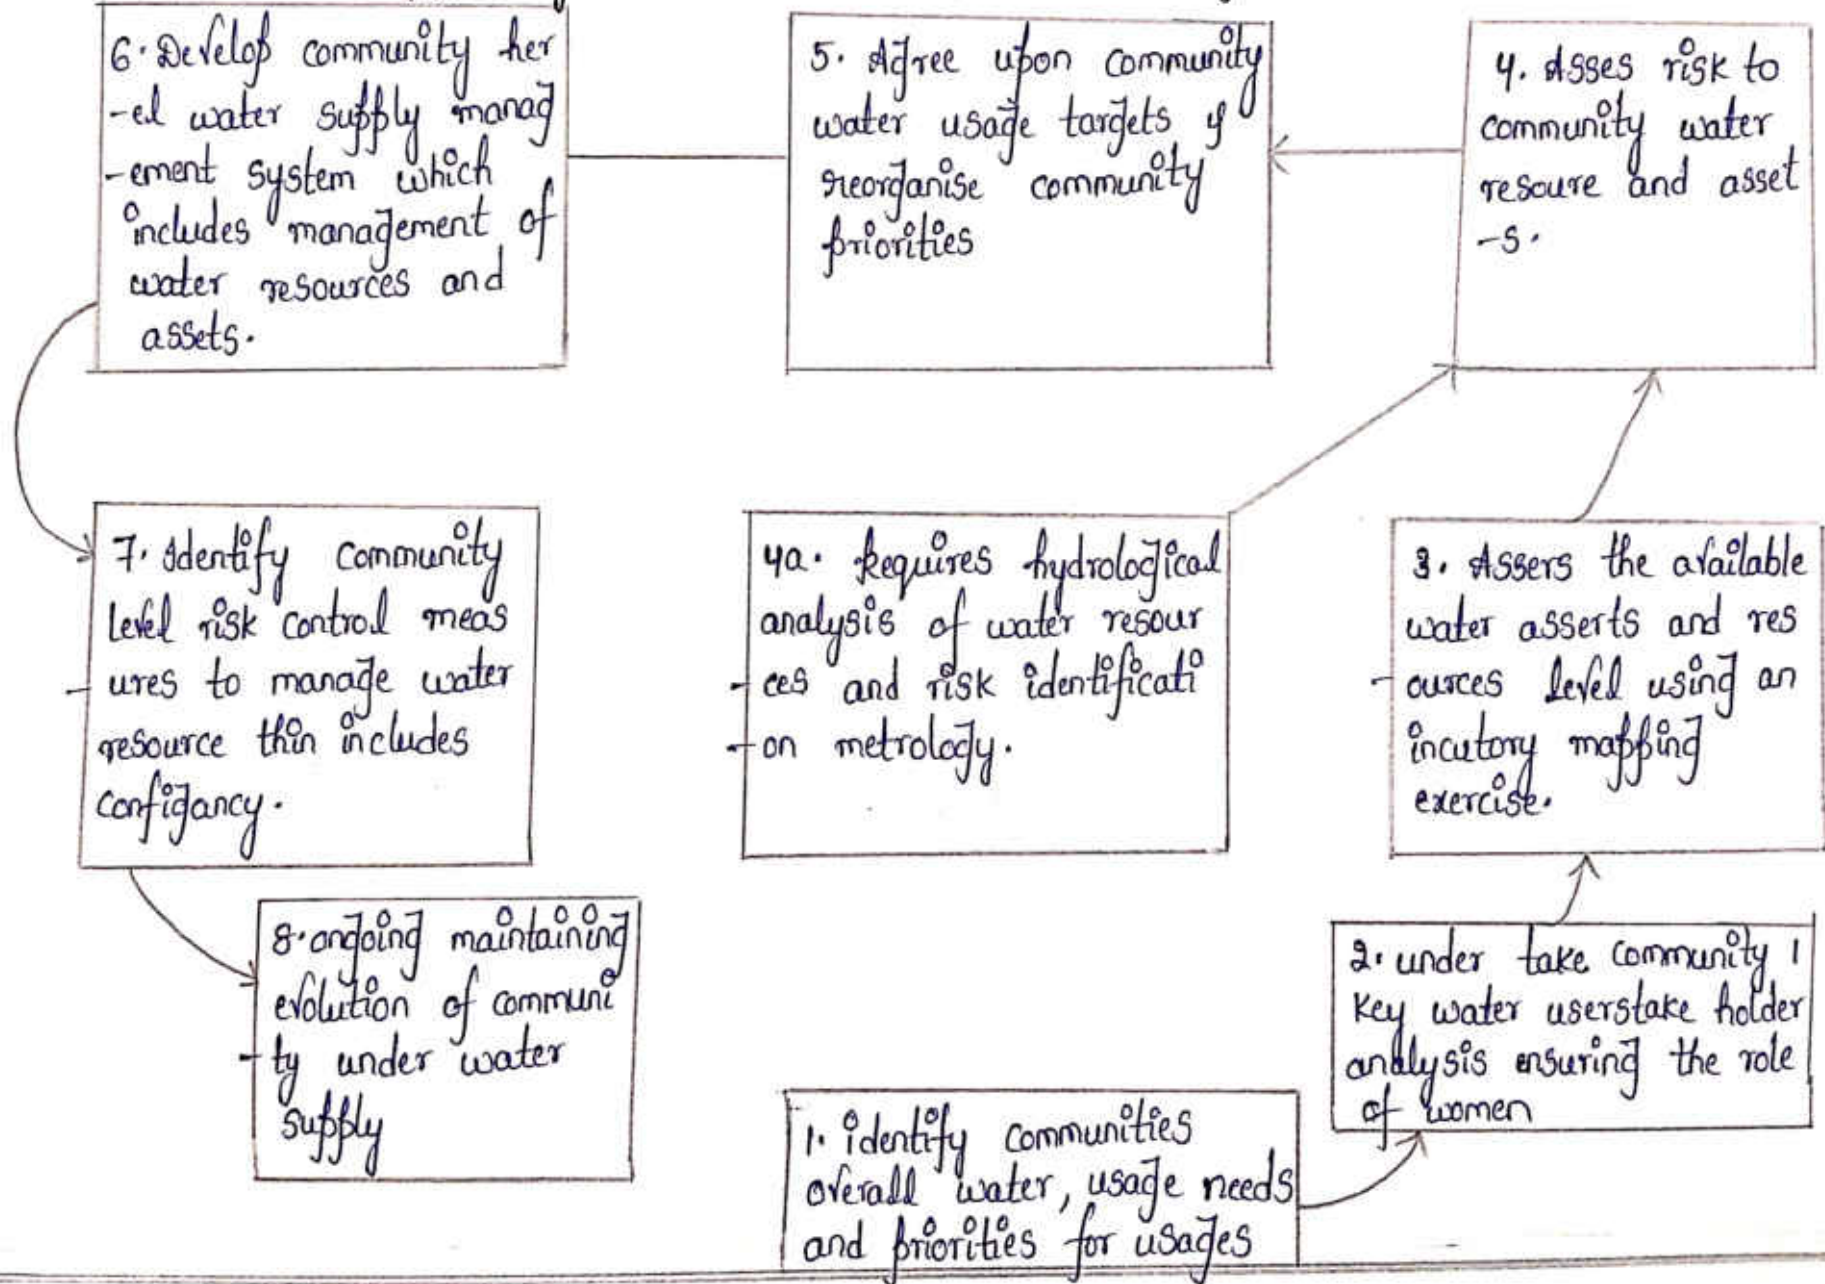 6. Develop community her
-el water supply manag
-ement system which
includes management of
water resources and
assets.
5. Agree upon community
water usage targets y
reorganise community
priorities
4. Asses risk to
community water
resoure and asset
-s.
7. Identify community
Level risk control meas
- ures to manage water
resource thin includes
configancy.
4a. Requires hydrological
analysis of water resour
- ces and risk identificati
- on metrology.
3. Assers the available
water asserts and res
- ources level using an
incutory mapping
exercise.
8. ongoing maintaining
evolution of communi
- ty under water
supply
2. under take community 1
key water userstake holder
analysis ensuring the role
of women
1. identify communities
overall water, usage needs
and priorities for usages